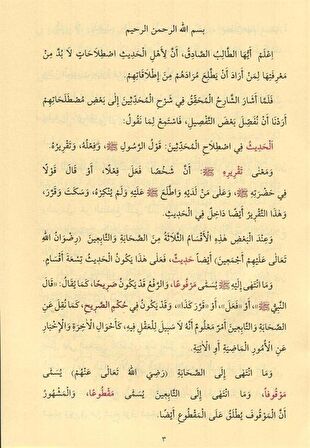 بسم الله الرحمن الرحيم
اِعْلَمْ أَيُّهَا الطَّالِبُ الصَّادِقُ، أَنَّ لِأَهْلِ الْحَدِيثِ اصْطِلَاحَاتٍ لَا بُدَّ مِنْ
مَعْرِفَتِهَا لِمَنْ أَرَادَ أَنْ يَطَّلِعَ مُرَادَهُمْ مِنْ إِطْلَاقَاتِهِمْ.
فَلَمَّا أَشَارَ الشَّارِحُ الْمُحَقِّقُ فِي شَرْحِ الْمُحَدِّثِينَ إِلَى بَعْضِ مُصْطَلَحَاتِهِمْ
أَرَدْنَا أَنْ نُفَصِّلَ بَعْضَ التَّفْصِيلِ، فَاسْتَمِعْ لِمَا نَقُولُ:
اَلْحَدِيثُ فِي اصْطِلَاحِ الْمُحَدِّثِينَ: قَوْلُ الرَّسُولِ ﷺ، وَفِعْلُهُ، وَتَقْرِيرُهُ.
وَمَعْنَى تَقْرِيرِهِ ﷺ: أَنَّ شَخْصًا فَعَلَ فِعْلًا، أَوْ قَالَ قَوْلًا
فِي حَضْرَتِهِ ﷺ، وَعَلَى مَنْ لَدَيْهِ وَاطَّلَعَ ﷺ عَلَيْهِ وَلَمْ يُنْكِرْهُ، وَسَكَتَ وَقَرَّرَ،
وَهَذَا التَّقْرِيرُ أَيْضًا دَاخِلٌ فِي الْحَدِيثِ.
وَعِنْدَ الْبَعْضِ هَذِهِ الْأَقْسَامُ الثَّلَاثَةُ مِنَ الصَّحَابَةِ وَالتَّابِعِينَ (رِضْوَانُ اللهِ
تَعَالَى عَلَيْهِمْ أَجْمَعِينَ) أَيْضًا حَدِيثٌ، فَعَلَى هَذَا يَكُونُ الْحَدِيثُ تِسْعَةَ أَقْسَامٍ.
وَمَا انْتَهَى إِلَيْهِ ﷺ يُسَمَّى مَرْفُوعًا، وَالرَّفْعُ قَدْ يَكُونُ صَرِيحًا، كَمَا يُقَالُ: «قَالَ
النَّبِيُّ ﷺ»، أَوْ «فَعَلَ»، أَوْ «قَرَّرَ كَذَا»، وَقَدْ يَكُونُ فِي حُكْمِ الصَّرِيحِ، كَمَا نُقِلَ عَنِ
الصَّحَابَةِ وَالتَّابِعِينَ أَمْرٌ مَعْلُومٌ أَنَّهُ لَا سَبِيلَ لِلْعَقْلِ فِيهِ، كَأَحْوَالِ الْآخِرَةِ وَالْإِخْبَارِ
عَنِ الْأُمُورِ الْمَاضِيَةِ أَوِ الْآتِيَةِ.
وَمَا انْتَهَى إِلَى الصَّحَابَةِ (رَضِيَ اللهُ تَعَالَى عَنْهُمْ) يُسَمَّى
مَوْقُوفًا، وَمَا انْتَهَى إِلَى التَّابِعِينَ يُسَمَّى مَقْطُوعًا، وَالْمَشْهُورُ
أَنَّ الْمَوْقُوفَ يُطْلَقُ عَلَى الْمَقْطُوعِ أَيْضًا.
٣